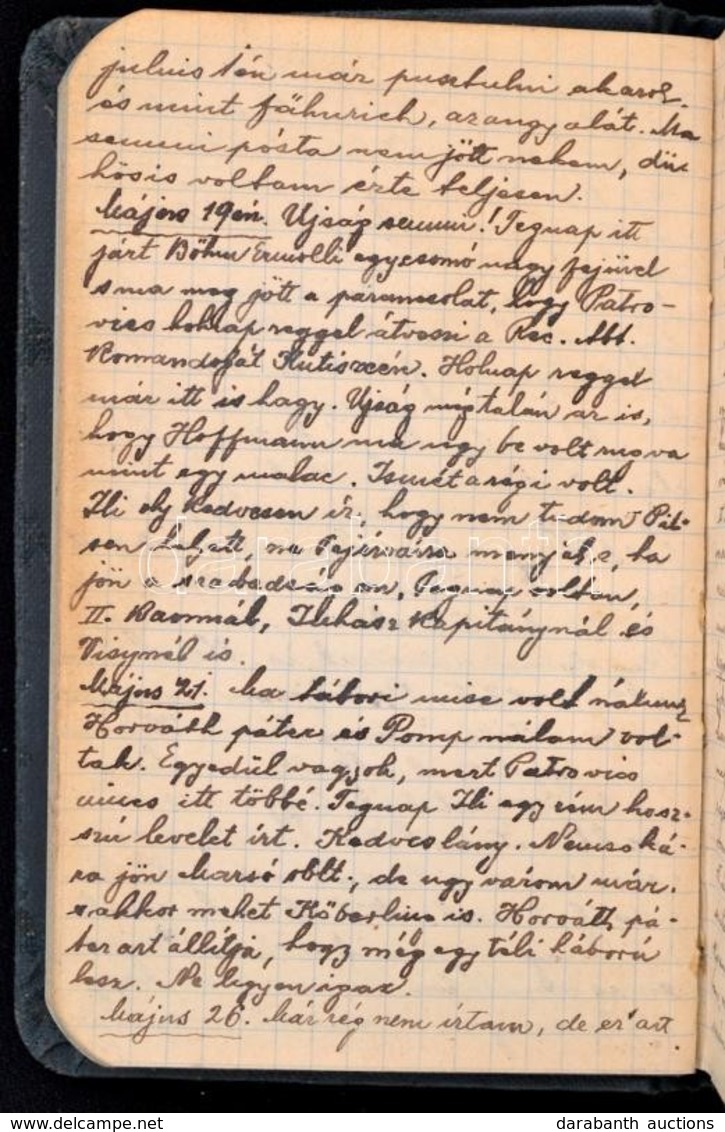 julius 1én már pusztulni akarok
és mint fähnrich, az angyalát. Ma
semmi pósta nem jött nekem, dü-
hös is voltam érte teljesen.
Május 19én. Ujság semmi! Tegnap itt
járt Böhm Ermolli egy csomó nagy fejüvel
s ma meg jött a parancsolat, hogy Patro-
vics holnap reggel átveszi a Rec. Abt.
Komandóját Kutiscén. Holnap reggel
már itt is hagy. Ujság még talán az is,
hogy Hoffmann ma ugy be volt rugva
mint egy malac. Ismét a régi volt.
Ili oly kedvesen ír, hogy nem tudom Pil-
sen helyett, ne Fejérvárra menjek e, ha
jön a szabadságom. Tegnap voltam
II. Baonnál, Juhász kapitánynál és
Visynél is.
Május 21. Ma tábori mise volt nálunk
Horváth páter és Pomp nálam vol-
tak. Egyedül vagyok, mert Patrovics
nincs itt többé. Tegnap Ili egy rém hosz-
szú levelet írt. Kedves lány. Nemsoká-
ra jön Marsó oblt., de ugy várom már.
s akkor mehet Köberling is. Horváth pá-
ter azt állítja, hogy még egy téli háború
lesz. Ne legyen igaz.
Május 26. Már rég nem írtam, de ez azt
darabanth
www.darabanth.com
darabanth auctions